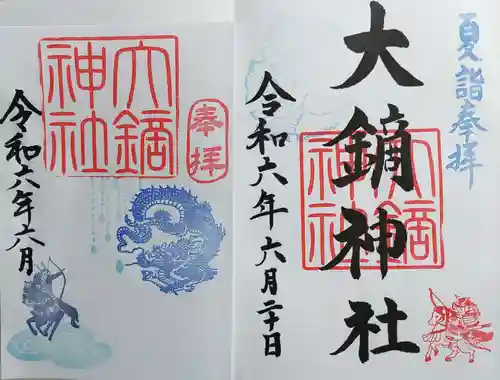 夏詣奉拝
大鏑神社
大鏑神社
令和六年六月二十日
奉拝
大鏑神社
令和六年六月